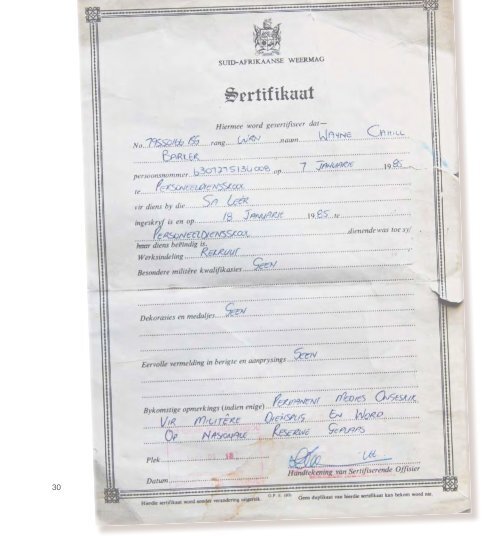 SUID-AFRIKAANSE WEERMAG
Sertifikaat
Hiermee word gesertifiseer dat—
No. 79550166 BG rang WRN naam WAYNE CAHILL
BARKER
persoonsnommer 6307275134008 op 7 JANUARIE 1985
te PERSONEELDIENSSKOOL
vir diens by die SA LEËR
ingeskryf is en op 18 JANUARIE 1985 te
PERSONEELDIENSSKOOL dienende was toe sy/
haar diens beëindig is.
Werksindeling REKRUUT
Besondere militêre kwalifikasies GEEN
Dekorasies en medaljes GEEN
Eervolle vermelding in berigte en aanprysings GEEN
Bykomstige opmerkings (indien enige) PERMANENT MEDIES ONGESKIK
VIR MILITÊRE DIENSPLIG EN WORD
OP NASIONALE RESERWE GEPLAAS
Plek
Handtekening van Sertifiserende Offisier
Datum
Hierdie sertifikaat word sonder verandering uitgereik. Geen duplikaat van hierdie sertifikaat kan bekom word nie.
30